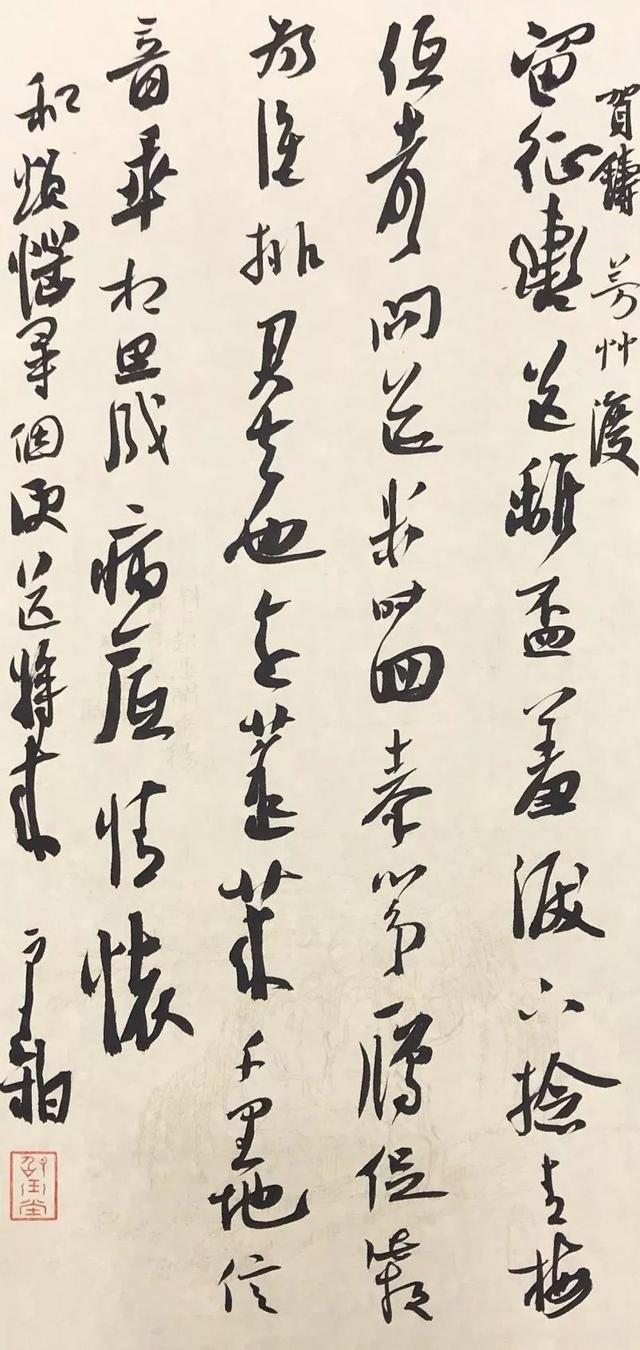 賀鑄 芳艸渡
留征轡送離盃羞淚下捻青梅
低声問道幾時回秦箏鴈促此夜
為誰排君去也遠蓬萊千里地信
音乖相思成病底情懷
和煩惱尋個便送將來